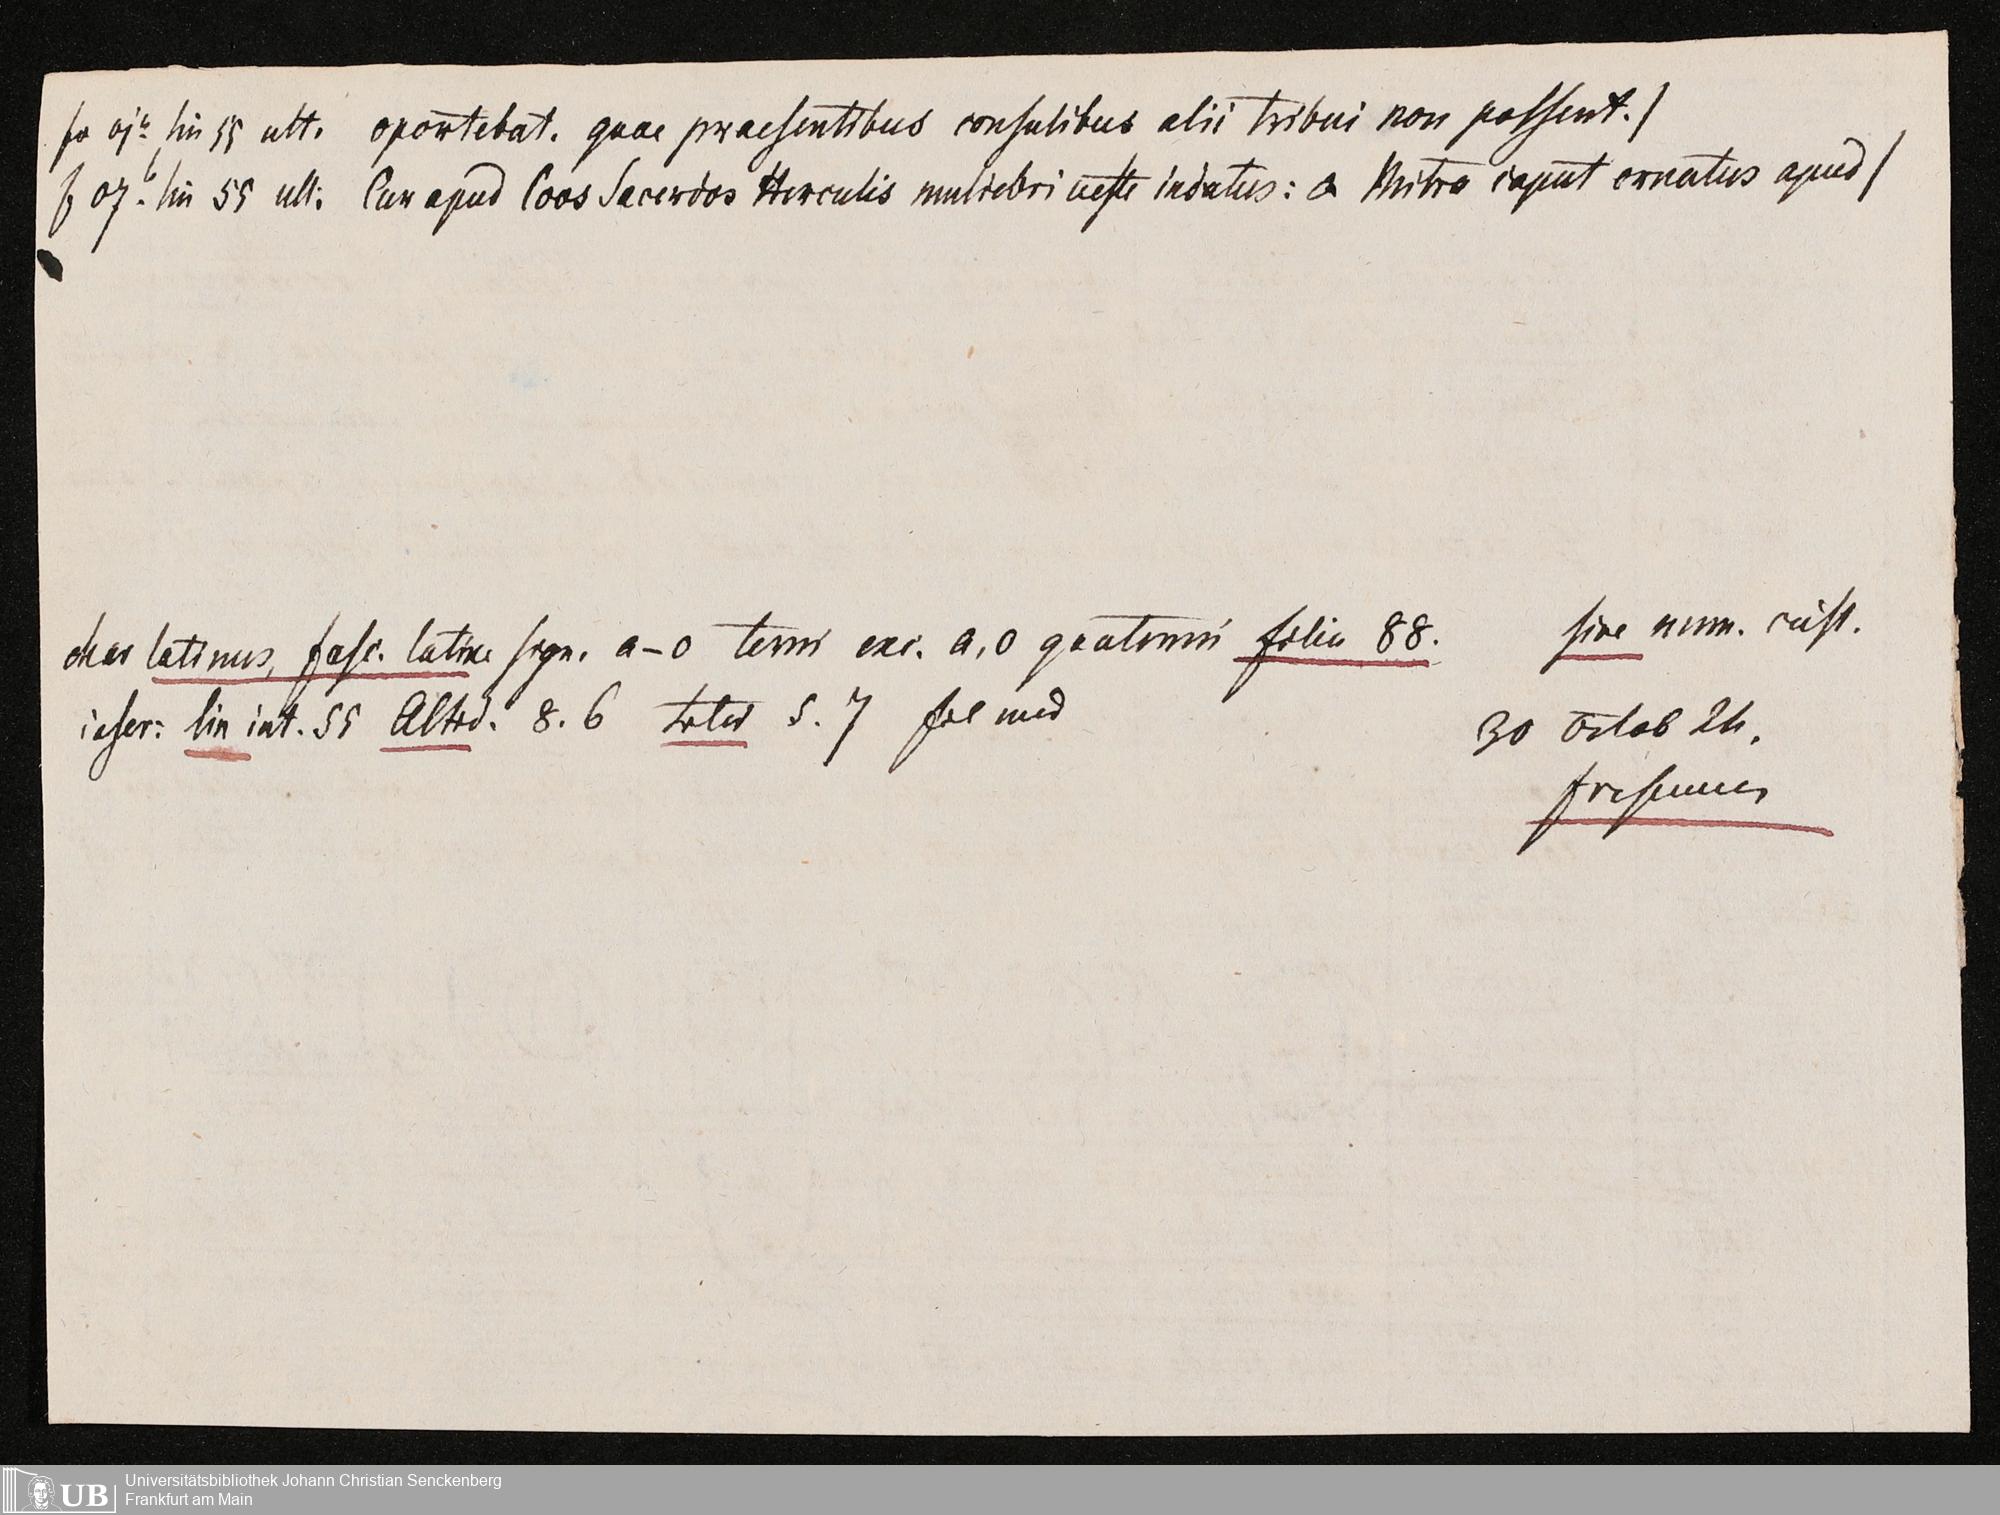 fo oj a lin 55 ult. oportebat. quae praesentibus consulibus alii tribui non possent. /
f 07 b lin 55 ult: Cur apud Coos Sacerdos Herculis muliebri ueste indutus: & Mitra caput ornatus apud /
char latinus, fasc. latine sign. a–o terni exc. a, o quaterni folia 88. sine num. cust.
lin int. 55 Altid. 8. 6 5. 7 fol med
30 Octob 24.
Universitätsbibliothek Johann Christian Senckenberg
Frankfurt am Main
UB